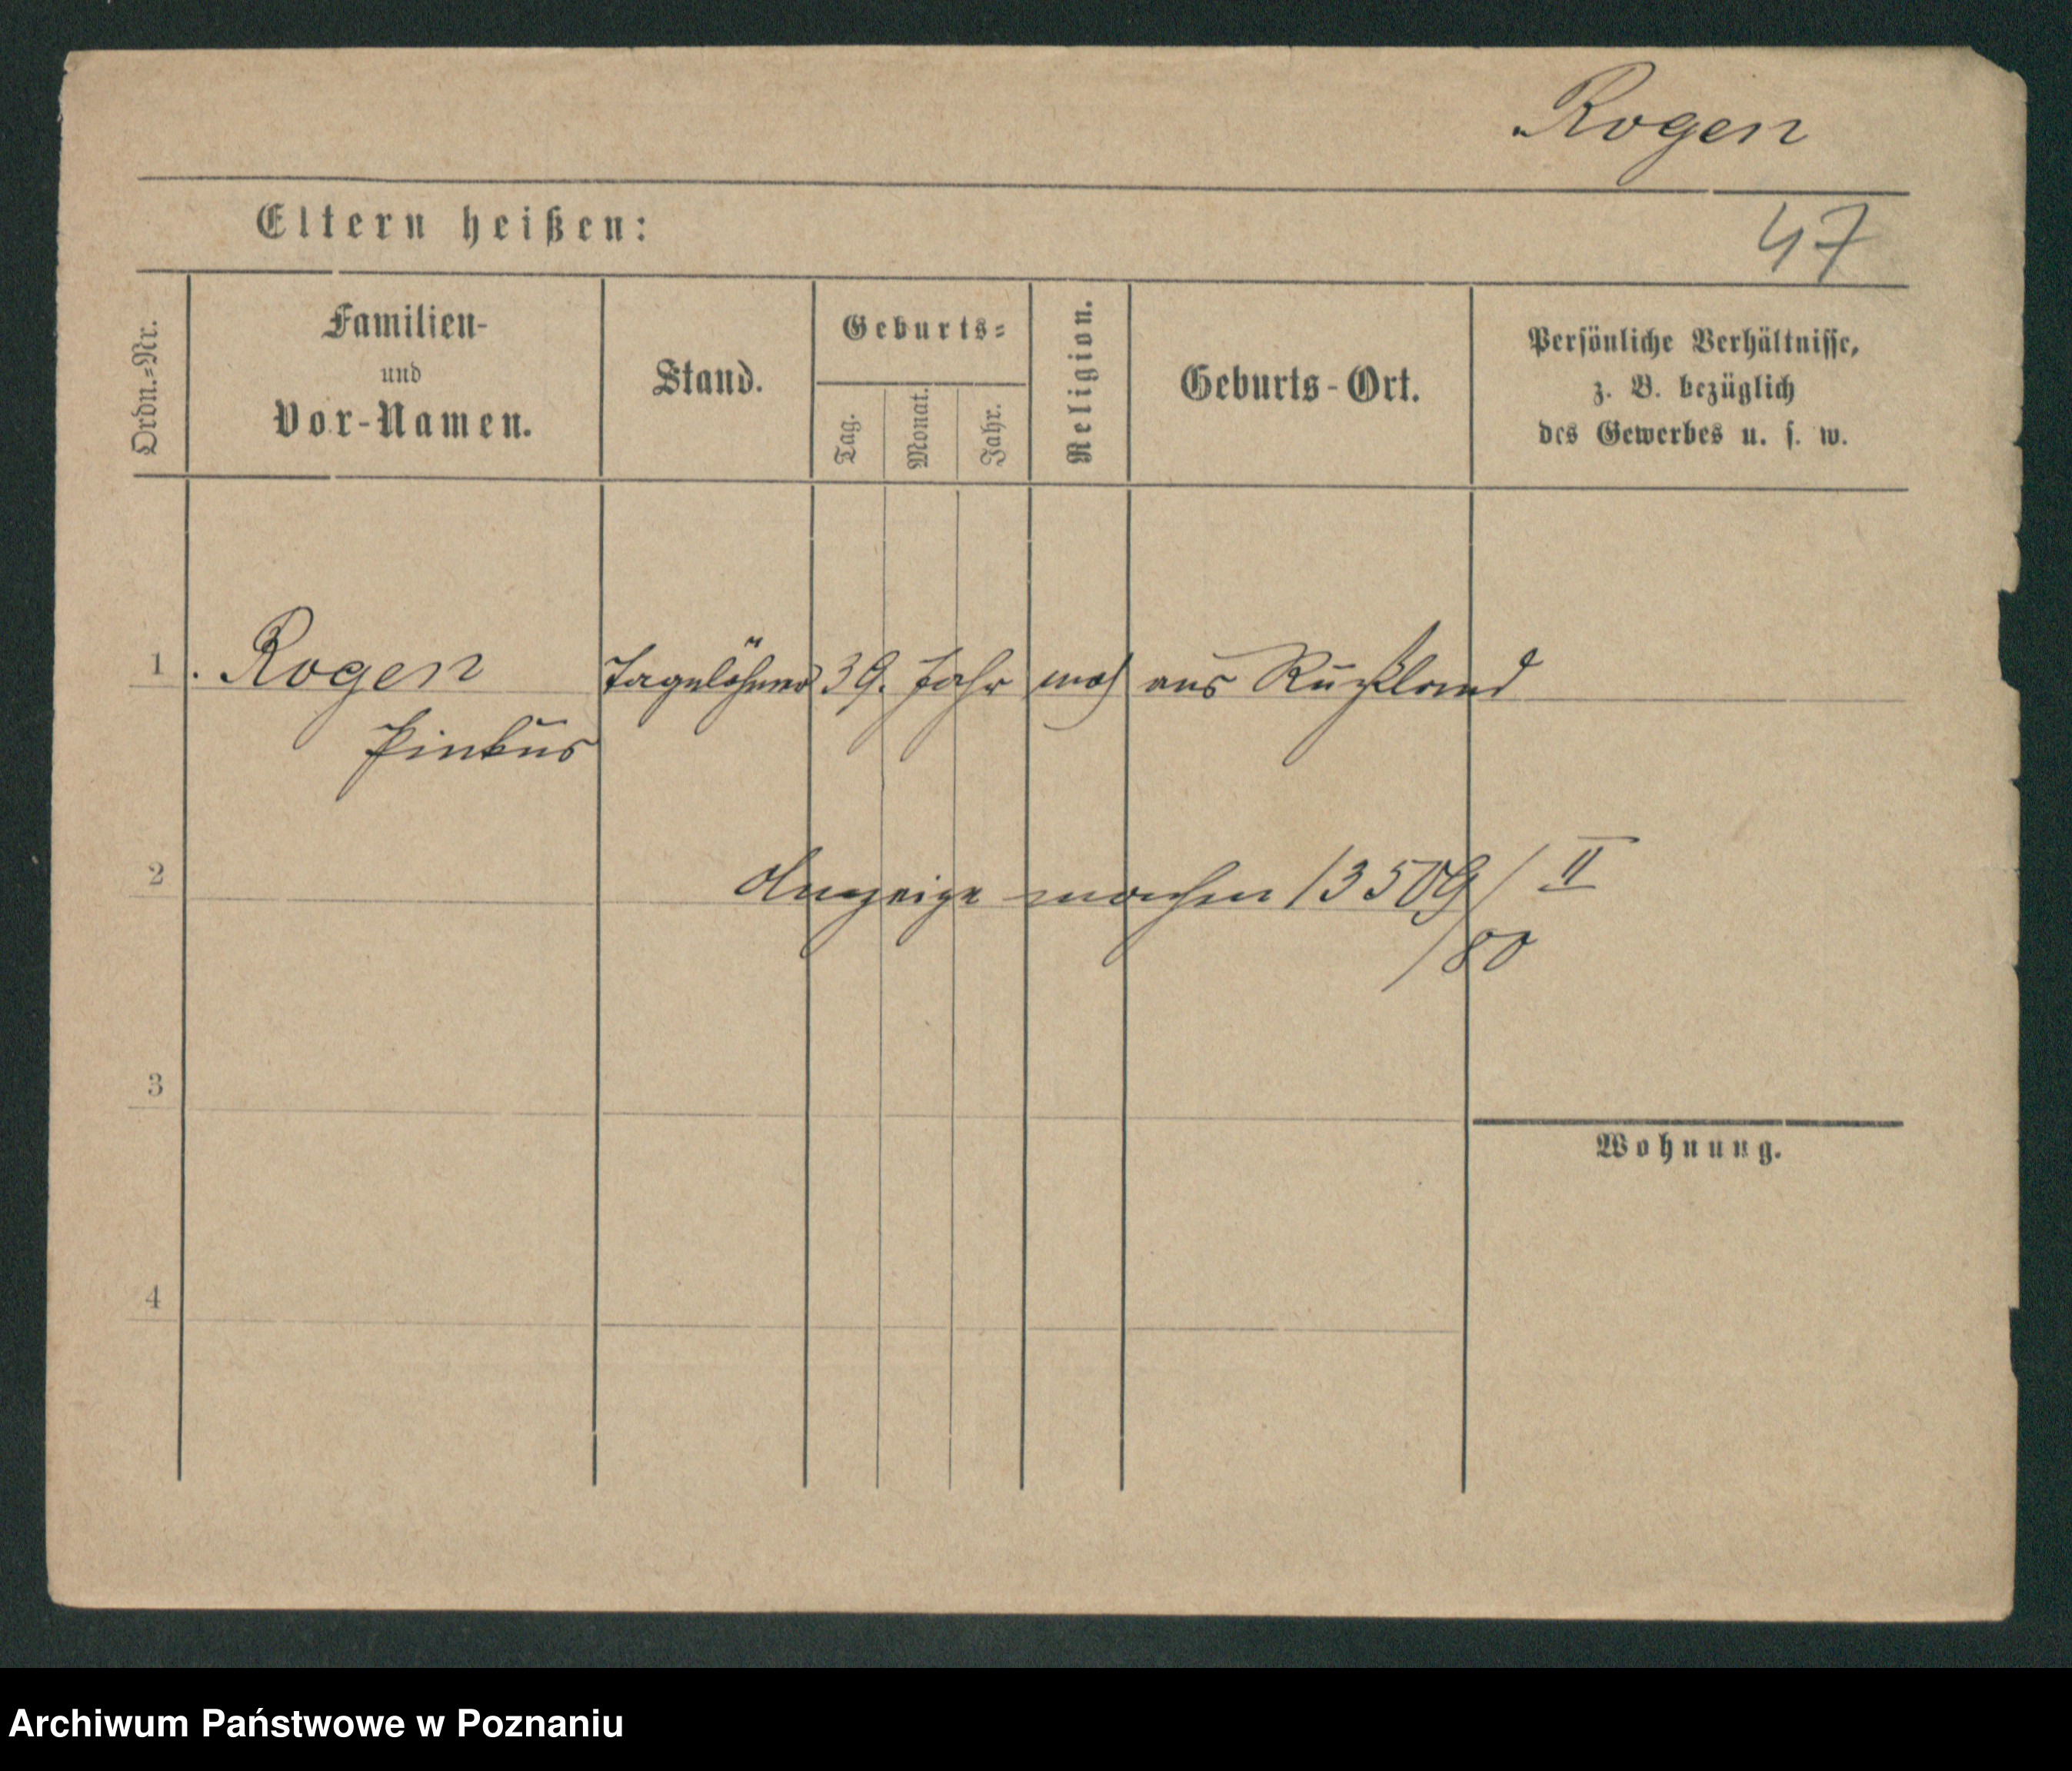 Rogen
Eltern heißen:
47
Ordn.=Nr.
Familien-
und
Vor-Namen.
Stand.
Geburts=
Tag.
Monat.
Jahr.
Religion.
Geburts-Ort.
Persönliche Verhältnisse,
z. B. bezüglich
des Gewerbes u. s. w.
1 Rogen Tagelöhner 39. Jahr mos aus Rußland
Pinkus
2 Anzeige machen 13509/II
/80
3
Wohnung.
4
Archiwum Państwowe w Poznaniu